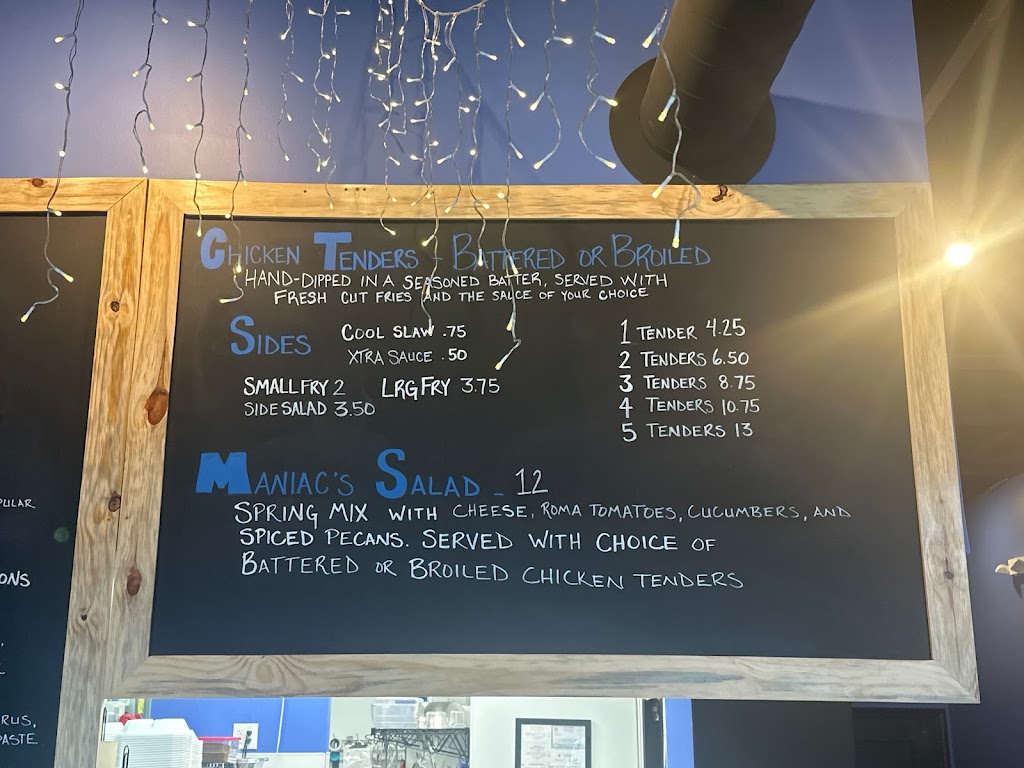 CHICKEN TENDERS - BATTERED OR BROILED
HAND-DIPPED IN A SEASONED BATTER, SERVED WITH
FRESH CUT FRIES AND THE SAUCE OF YOUR CHOICE
SIDES
COOL SLAW .75
XTRA SAUCE .50
SMALL FRY 2 LRG FRY 3.75
SIDE SALAD 3.50
1 TENDER 4.25
2 TENDERS 6.50
3 TENDERS 8.75
4 TENDERS 10.75
5 TENDERS 13
MANIAC'S SALAD - 12
SPRING MIX WITH CHEESE, ROMA TOMATOES, CUCUMBERS, AND
SPICED PECANS. SERVED WITH CHOICE OF
BATTERED OR BROILED CHICKEN TENDERS
PULAR
ONS
RUS,
PASTE